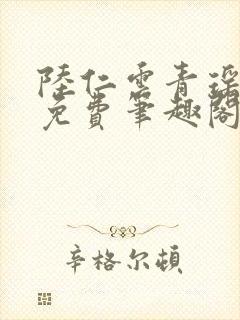 陸仁雲青瑤
免費筆趣閣
辛格尔顿